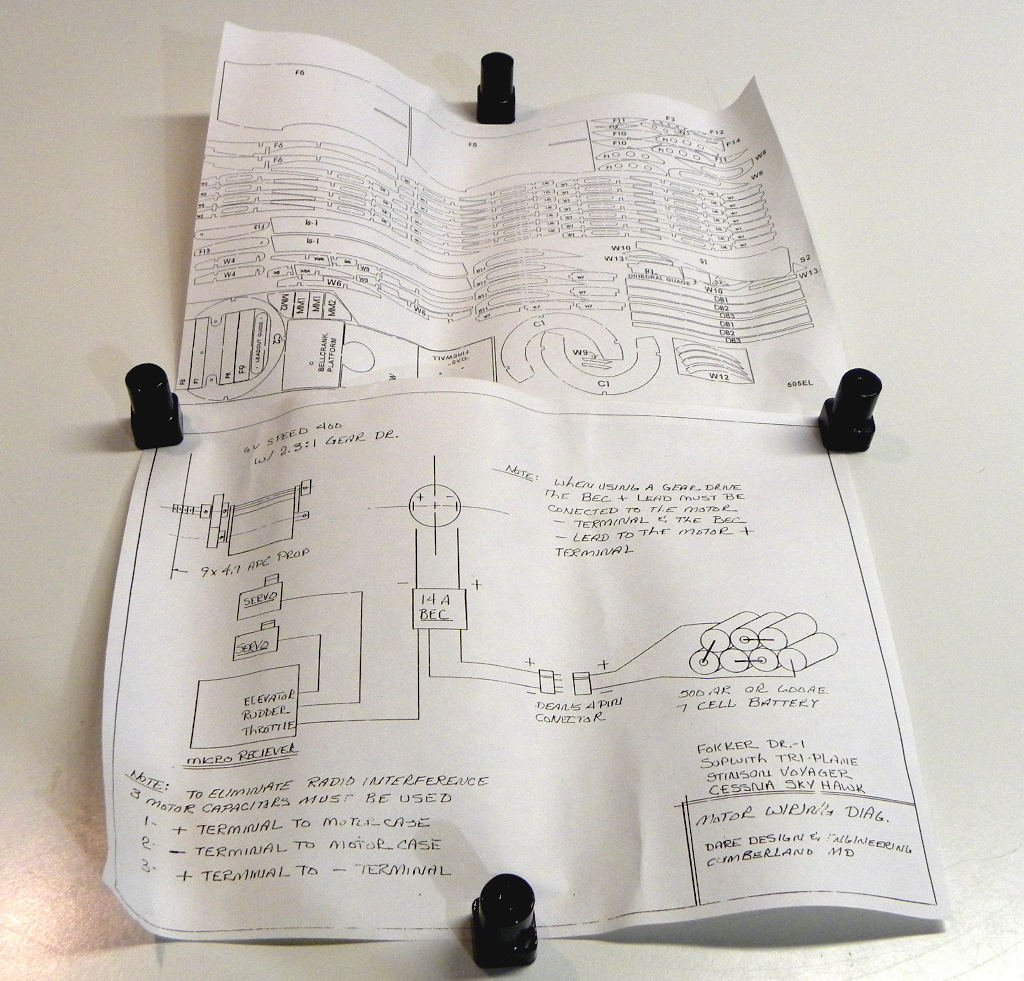 F5
F5
F11
F3
F12
F10
F10
F14
W8
W8
F6
F6
is-1
is-1
F13
F13
W4
W4
W6
W6
W3
W3
W10
W13
S1
S2
S2
W13
DIHEDRAL GUAGE
W10
DB1
DB2
DB3
DB1
DB2
DB3
MM2
MM1
MM1
MM2
C2
F9
LEADOUT GUIDE
BELLCRANK
PLATFORM
W
"GAS"
FIREWALL
C1
W9
C1
W12
505EL
6V SPEED 400
W/ 2.3:1 GEAR DR.
9 x 4.7 APC PROP
NOTE: WHEN USING A GEAR DRIVE
THE BEC + LEAD MUST BE
CONECTED TO THE MOTOR
- TERMINAL & THE BEC
- LEAD TO THE MOTOR +
TERMINAL
+ -
- +
14 A
BEC
SERVO
SERVO
ELEVATOR
RUDDER
THROTTLE
MICRO RECIEVER
+ +
- -
DEANS 4 PIN
CONECTOR
500AR OR 600AE
7 CELL BATTERY
NOTE: TO ELIMINATE RADIO INTERFERENCE
3 MOTOR CAPACITORS MUST BE USED
1- + TERMINAL TO MOTOR CASE
2- - TERMINAL TO MOTOR CASE
3- + TERMINAL TO - TERMINAL
FOKKER DR.-1
SOPWITH TRI-PLANE
STINSON VOYAGER
CESSNA SKY HAWK
MOTOR WIRING DIAG.
DARE DESIGN & ENGINEERING
CUMBERLAND MD